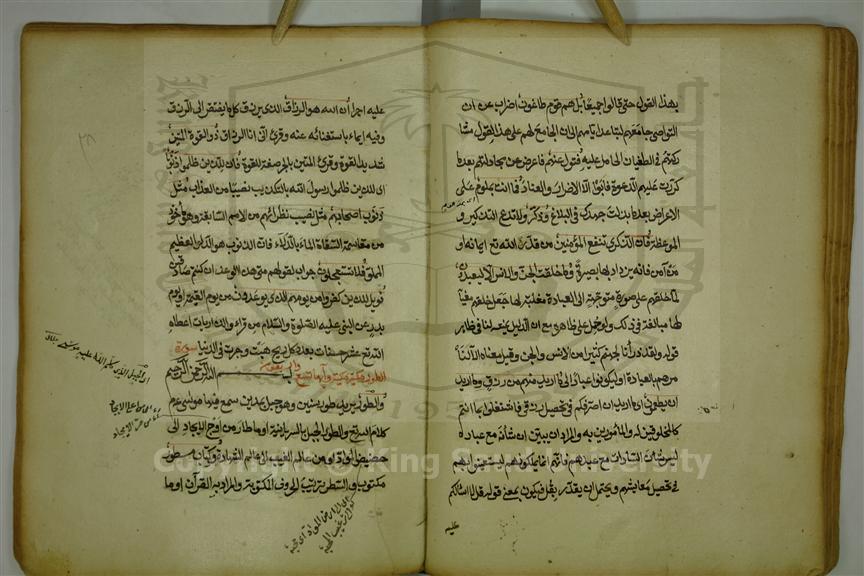 بهذا القول حتى قالوا جميعا بل هم قوم طاغون اضراب عن ان
التواصي جامعهم لتباعد ايامهم الى ان الجامع لهم على هذا القول مشا
ركتهم في الطغيان الحامل عليه فتول عنهم فاعرض عن مجادلتهم بعد ما
كررت عليهم الدعوة فابوا الا الاصرار والعناد فما انت بملوم على
الاعراض بعد ما بذلت جهدك في البلاغ وذكر ولا تدع التذكير و
الموعظة فان الذكرى تنفع المؤمنين من قدر الله تع ايمانه او
من آمن فانه يزداد بها بصيرة وما خلقت الجن والانس الا ليعبدون
لما خلقهم على صورة متوجهة الى العبادة مغلبة لها جعل خلقهم مغيا
لها مبالغة في ذلك ولو حمل على ظاهره مع ان الدليل يمنعه لنا في ظاهر
قوله ولقد ذرأنا لجهنم كثيرا من الانس والجن وقيل معناه الا لنا
مرهم بالعبادة او ليكونوا عبادا لي ما اريد منهم من رزق وما اريد
ان يطعمون اي ما اريد ان اصرفكم في تحصيل رزقي فاشتغلوا بما انتم
كالمخلوقين له والمأمورين به والمراد ان يبين ان شأنه مع عباده
ليس شأن السادات مع عبيدهم فانهم انما يملكونهم ليستعينوا بهم
في تحصيل معايشهم ويحتمل ان يقدر بقل فيكون بمعنى قوله قل لا اسالكم
عليه
عليه اجرا ان الله هو الرزاق الذي يرزق كل ما يفتقر الى الرزق
وفيه ايماء باستغنائه عنه وقرئ اني انا الرزاق ذو القوة المتين
شديد القوة وقرئ المتين بالجر صفة للقوة فان للذين ظلموا ذنوبا
اي للذين ظلموا رسول الله بالتكذيب نصيبا من العذاب مثل
ذنوب اصحابهم مثل نصيب نظرائهم من الامم السالفة وهو مأخوذ
من مقاسمة السقاة الماء بالدلاء فان الذنوب هو الدلو العظيم
المملو فلا يستعجلون جواب لقولهم متى هذا الوعد ان كنتم صادقين
فويل للذين كفروا من يومهم الذي يوعدون من يوم القيمة او يوم
بدر عن النبي عليه الصلوة والسلام من قراء والذاريات اعطاه
الله تع عشر حسنات بعدد كل ريح هبت وجرت في الدنيا سورة
الطور مكية وآيها تسع واربعون بسم الله الرحمن الرحيم
والطور يريد طور سينين وهو جبل بمدين سمع فيه موسى عم
كلام الله تع والطور الجبل بالسريانية او ما طار من اوج الايجاد الى
حضيض المواد او من عالم الغيب الى عالم الشهادة وكتاب مسطور
مكتوب والسطر ترتيب الحروف المكتوبة والمراد به القرآن او ما
Copyright © King Saud University
1957